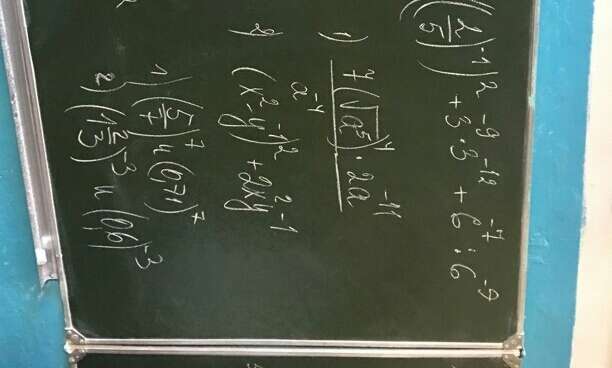 ((2/5)⁻¹)² + 3⁻⁹·3⁻¹² + 6⁻⁷ : 6⁻⁹
1) 7(√a⁵)⁴ · 2a⁻¹¹
a⁻⁴
2) (x² - y⁻¹)² + 2x²y⁻¹
1) (5/7)⁷ и (0,71)⁷
2) (1 2/3)⁻³ и (0,6)⁻³